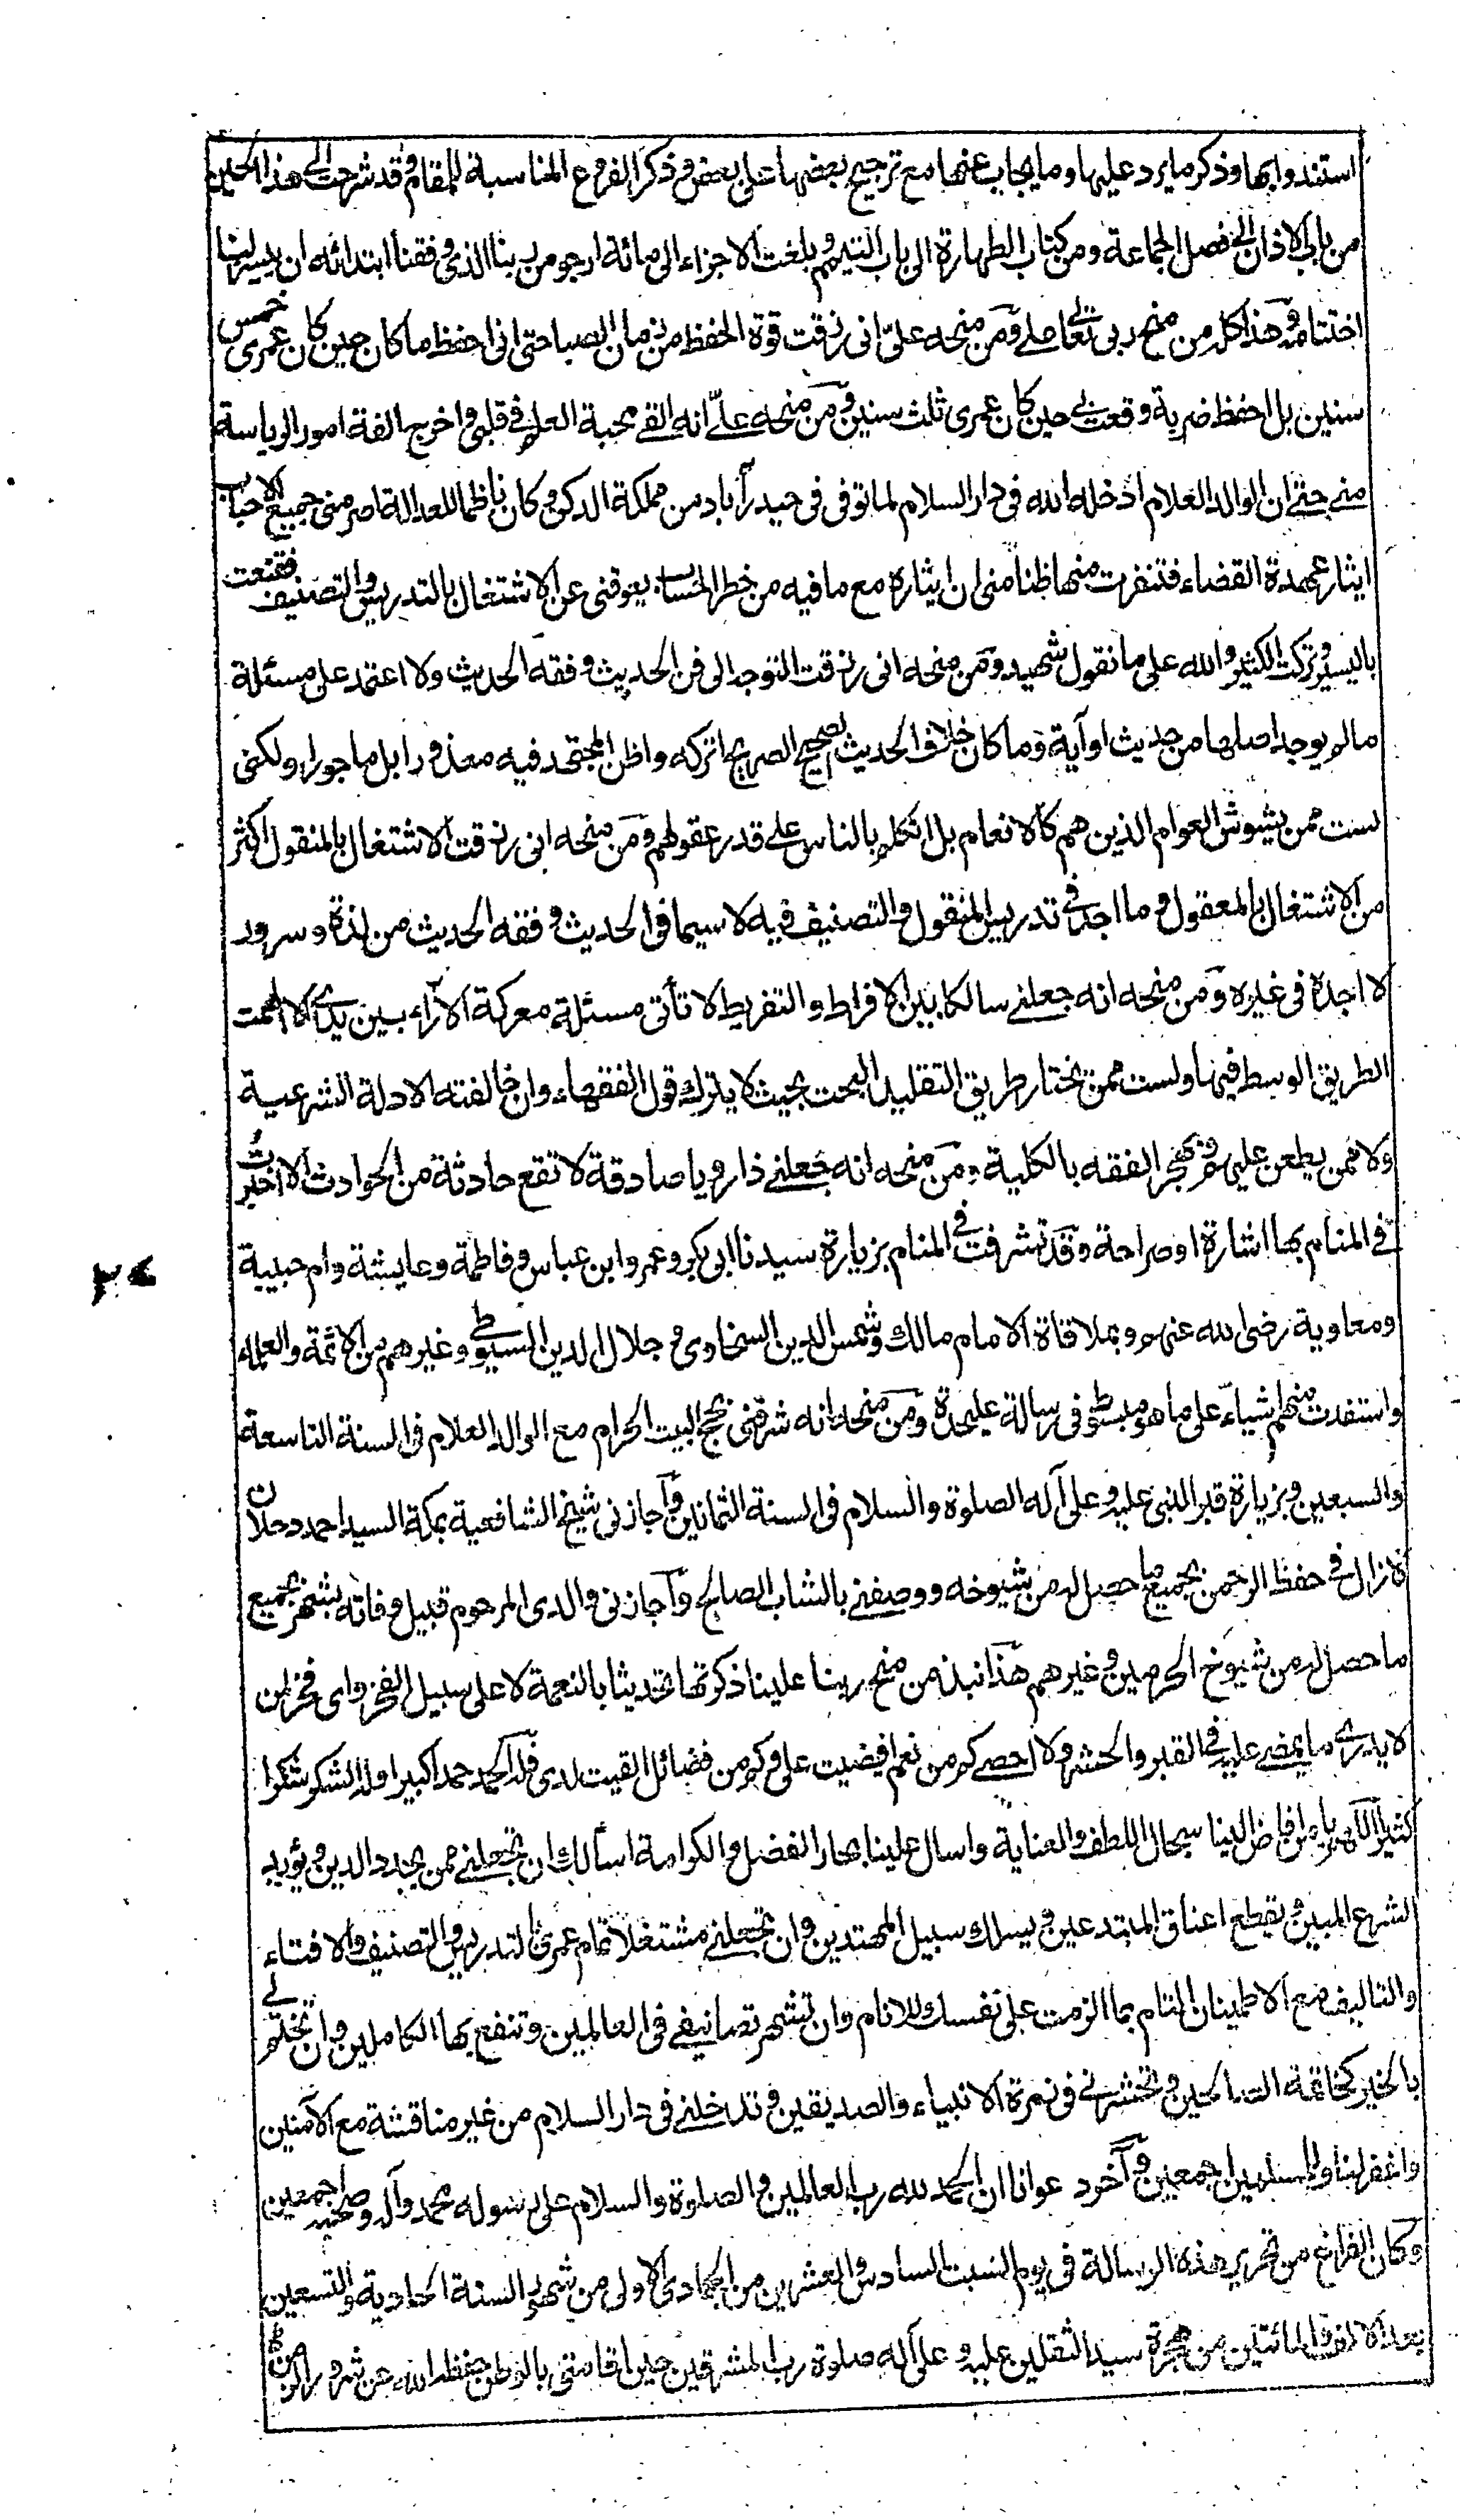 استندوا بها وذكر ما يرد عليها وما يجاب عنها مع ترجيح بعضها على بعض وذكر الفروع المناسبة للمقام وقد شرحت الى هذا الحين
من باب الاذان الى فصل الجماعة ومن كتاب الطهارة الى باب التيمم وبلغت الاجزاء الى مائة ارجو من ربنا الذى وفقنا ابتدائه ان ييسر لنا
اختتامه وهذا كل من منح ربى تعالى على ومن منحه علىّ انى رزقت قوة الحفظ من زمان الصبا حتى انى احفظ ما كان حين كان عمرى خمس
سنين بل احفظ ضربة وقعت بى حين كان عمرى ثلث سنين ومن منحه علىّ انه القى محبة العلم فى قلبى واخرج الفة امور الرياسة
منى حتى ان الوالد العلام ادخله الله فى دار السلام لما توفى فى حيدرآباد من مملكة الدكن وكان ناظما للعدالة اصر منى جميع الاحباب
ايثار عهدة القضاء فتنفرت منها ظنا منى ان ايثاره مع ما فيه من خطر الحساب يعوقنى عن الاشتغال بالتدريس والتصنيف فقنعت
باليسير وتركت الكثير والله على ما نقول شهيد ومن منحه انى رزقت التوجه الى فن الحديث وفقه الحديث ولا اعتمد على مسئلة
ما لم يوجد اصلها من حديث او آية وما كان خلاف الحديث الصحيح الصريح اتركه واظن المجتهد فيه معذورا بل ماجورا ولكنى
لست ممن يشوش العوام الذين هم كالانعام بل اتكلم بالناس على قدر عقولهم ومن منحه انى رزقت الاشتغال بالمنقول اكثر
من الاشتغال بالمعقول وما اجد فى تدريس المنقول والتصنيف فيه لا سيما فى الحديث وفقه الحديث من لذة وسرور
لا اجده فى غيره ومن منحه انه جعلنى سالكا بين الافراط والتفريط لا تأتى مسئلة معركة الآراء بين يدى الا الهمت
الطريق الوسط فيها ولست ممن يختار طريق التقليد البحت بحيث لا يترك قول الفقهاء وان خالفته الادلة الشرعية
ولا ممن يطعن عليهم ويهجر الفقه بالكلية ومن منحه انه جعلنى ذا رويا صادقة لا تقع حادثة من الحوادث الا اخبرت
فى المنام بها اشارة او صراحة وقد تشرفت فى المنام بزيارة سيدنا ابى بكر وعمر وابن عباس وفاطمة وعايشة وام حبيبة
ومعاوية رضى الله عنهم وبملاقاة الامام مالك وشمس الدين السخاوى وجلال الدين السيوطى وغيرهم من الائمة والعلماء
واستفدت منهم اشياء على ما هو مبسوط فى رسالة عليحدة ومن منحه انه شرفنى بحج البيت الحرام مع الوالد العلام فى السنة التاسعة
والسبعين وبزيارة قبر النبى عليه وعلى آله الصلوة والسلام فى السنة الثمانين وآجازنى شيخ الشافعية بمكة السيد احمد دحلان
لا زال فى حفظ الرحمن بجميع ما حصل له من شيوخه ووصفنى بالشاب الصالح وآجازنى والدى المرحوم قبيل وفاته بشهر بجميع
ما حصل له من شيوخ الحرمين وغيرهم هذا نبذ من منح ربنا علينا ذكرتها تحديثا بالنعمة لا على سبيل الفخر واى فخر لمن
لا يدرى ما يمضى عليه فى القبر والحشر ولا احصى كم من نعم افيضت على وكم من فضائل القيت لدى فله الحمد حمدا كبيرا وله الشكر شكرا
كثيرا اللهم يا من افاض الينا سجال اللطف والعناية واسال علينا بحار الفضل والكرامة اسألك ان تجعلنى ممن يجدد الدين ويؤيد
الشرع المبين ويقطع اعناق المبتدعين ويسلك سبيل المهتدين وان تجعلنى مشتغلا تمام عمرى بالتدريس والتصنيف والافتاء
والتاليف مع الاطمينان التام بما الزمت على نفسك للانام وان تشهر تصانيفى فى العالمين وتنفع بها الكاملين وان تختم لى
بالخير كخاتمة الصالحين وتحشرنى فى زمرة الانبياء والصديقين وتدخلنى فى دار السلام من غير مناقشة مع الآمنين
واغفر لنا وللمسلمين اجمعين وآخر دعوانا ان الحمد لله رب العالمين والصلوة والسلام على رسوله محمد وآله وصحبه اجمعين
وكان الفراغ من تحرير هذه الرسالة فى يوم السبت السادس والعشرين من الجمادى الاولى من شهور السنة الحادية والتسعين
بعد الالف والمائتين من هجرة سيد الثقلين عليه وعلى آله صلوة رب المشرقين حين اقامتى بالوطن حفظ الله عن شرور الزمن